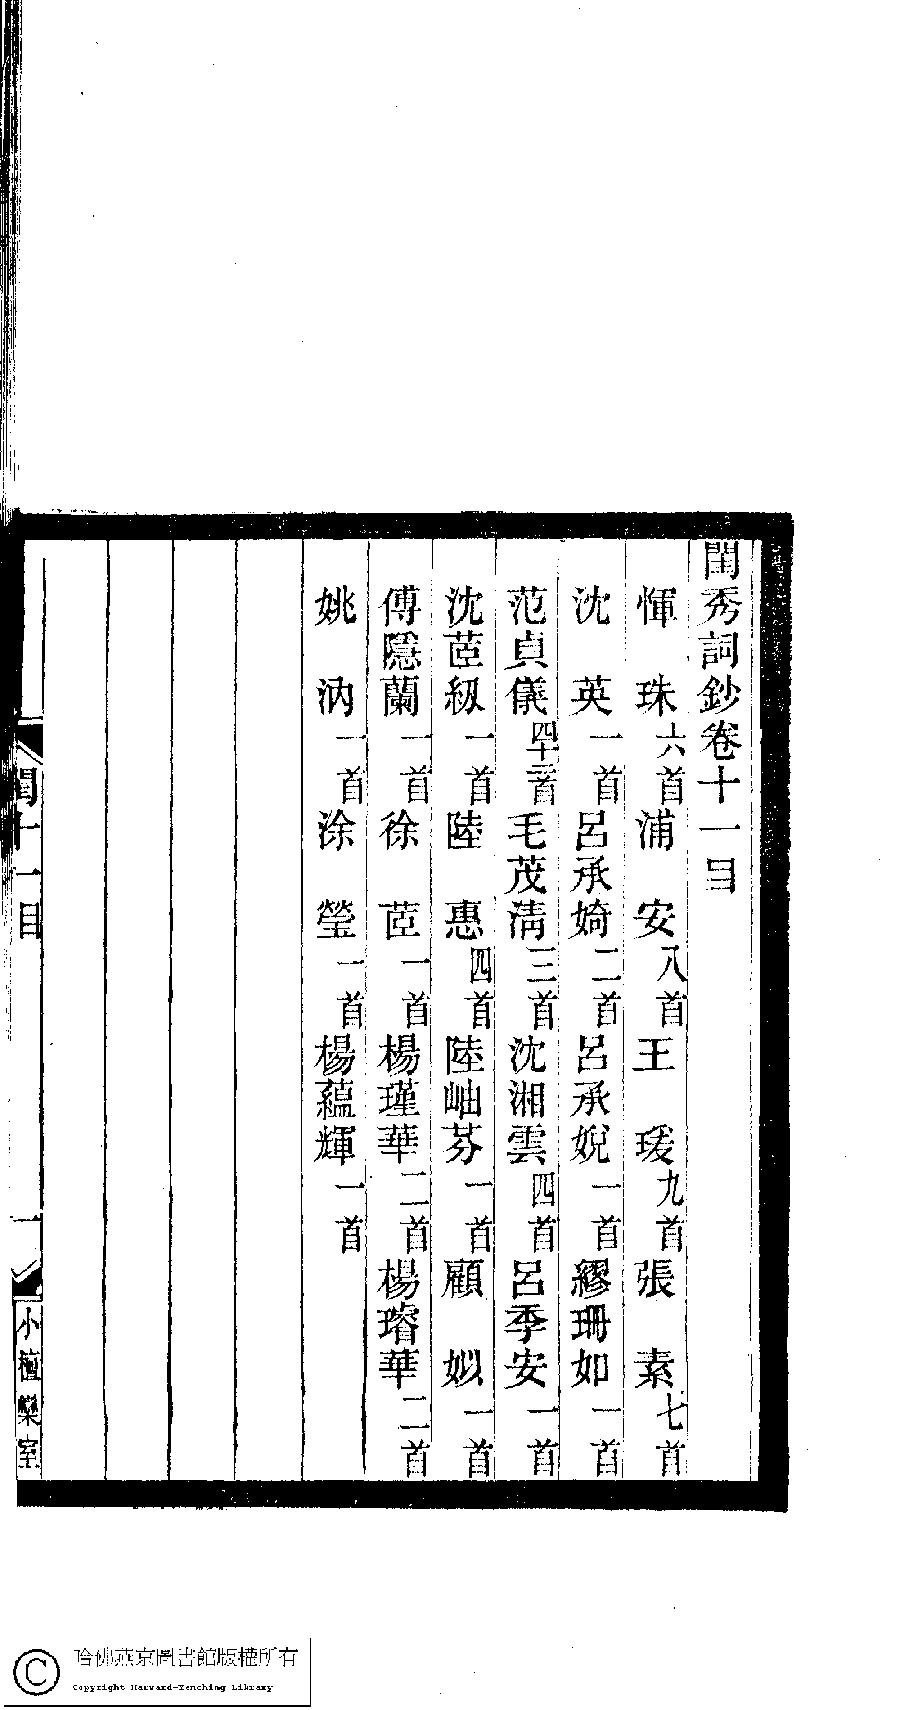 閨秀詞鈔卷十一目
惲　珠六首浦　安八首王　瑗九首張　素七首
沈　英一首呂承娧二首呂承娧一首繆珊如一首
范貞儀四十二首毛茂清三首沈湘雲四首呂季安一首
沈茝紉一首陸　惠四首陸岫芬一首顧　姒一首
傅隱蘭一首徐　茝一首楊瑾華二首楊璿華二首
姚　汭一首涂　瑩一首楊蘊輝一首
閨十一目
一
小檀欒室
哈佛燕京圖書館版權所有
Copyright Harvard-Yenching Library